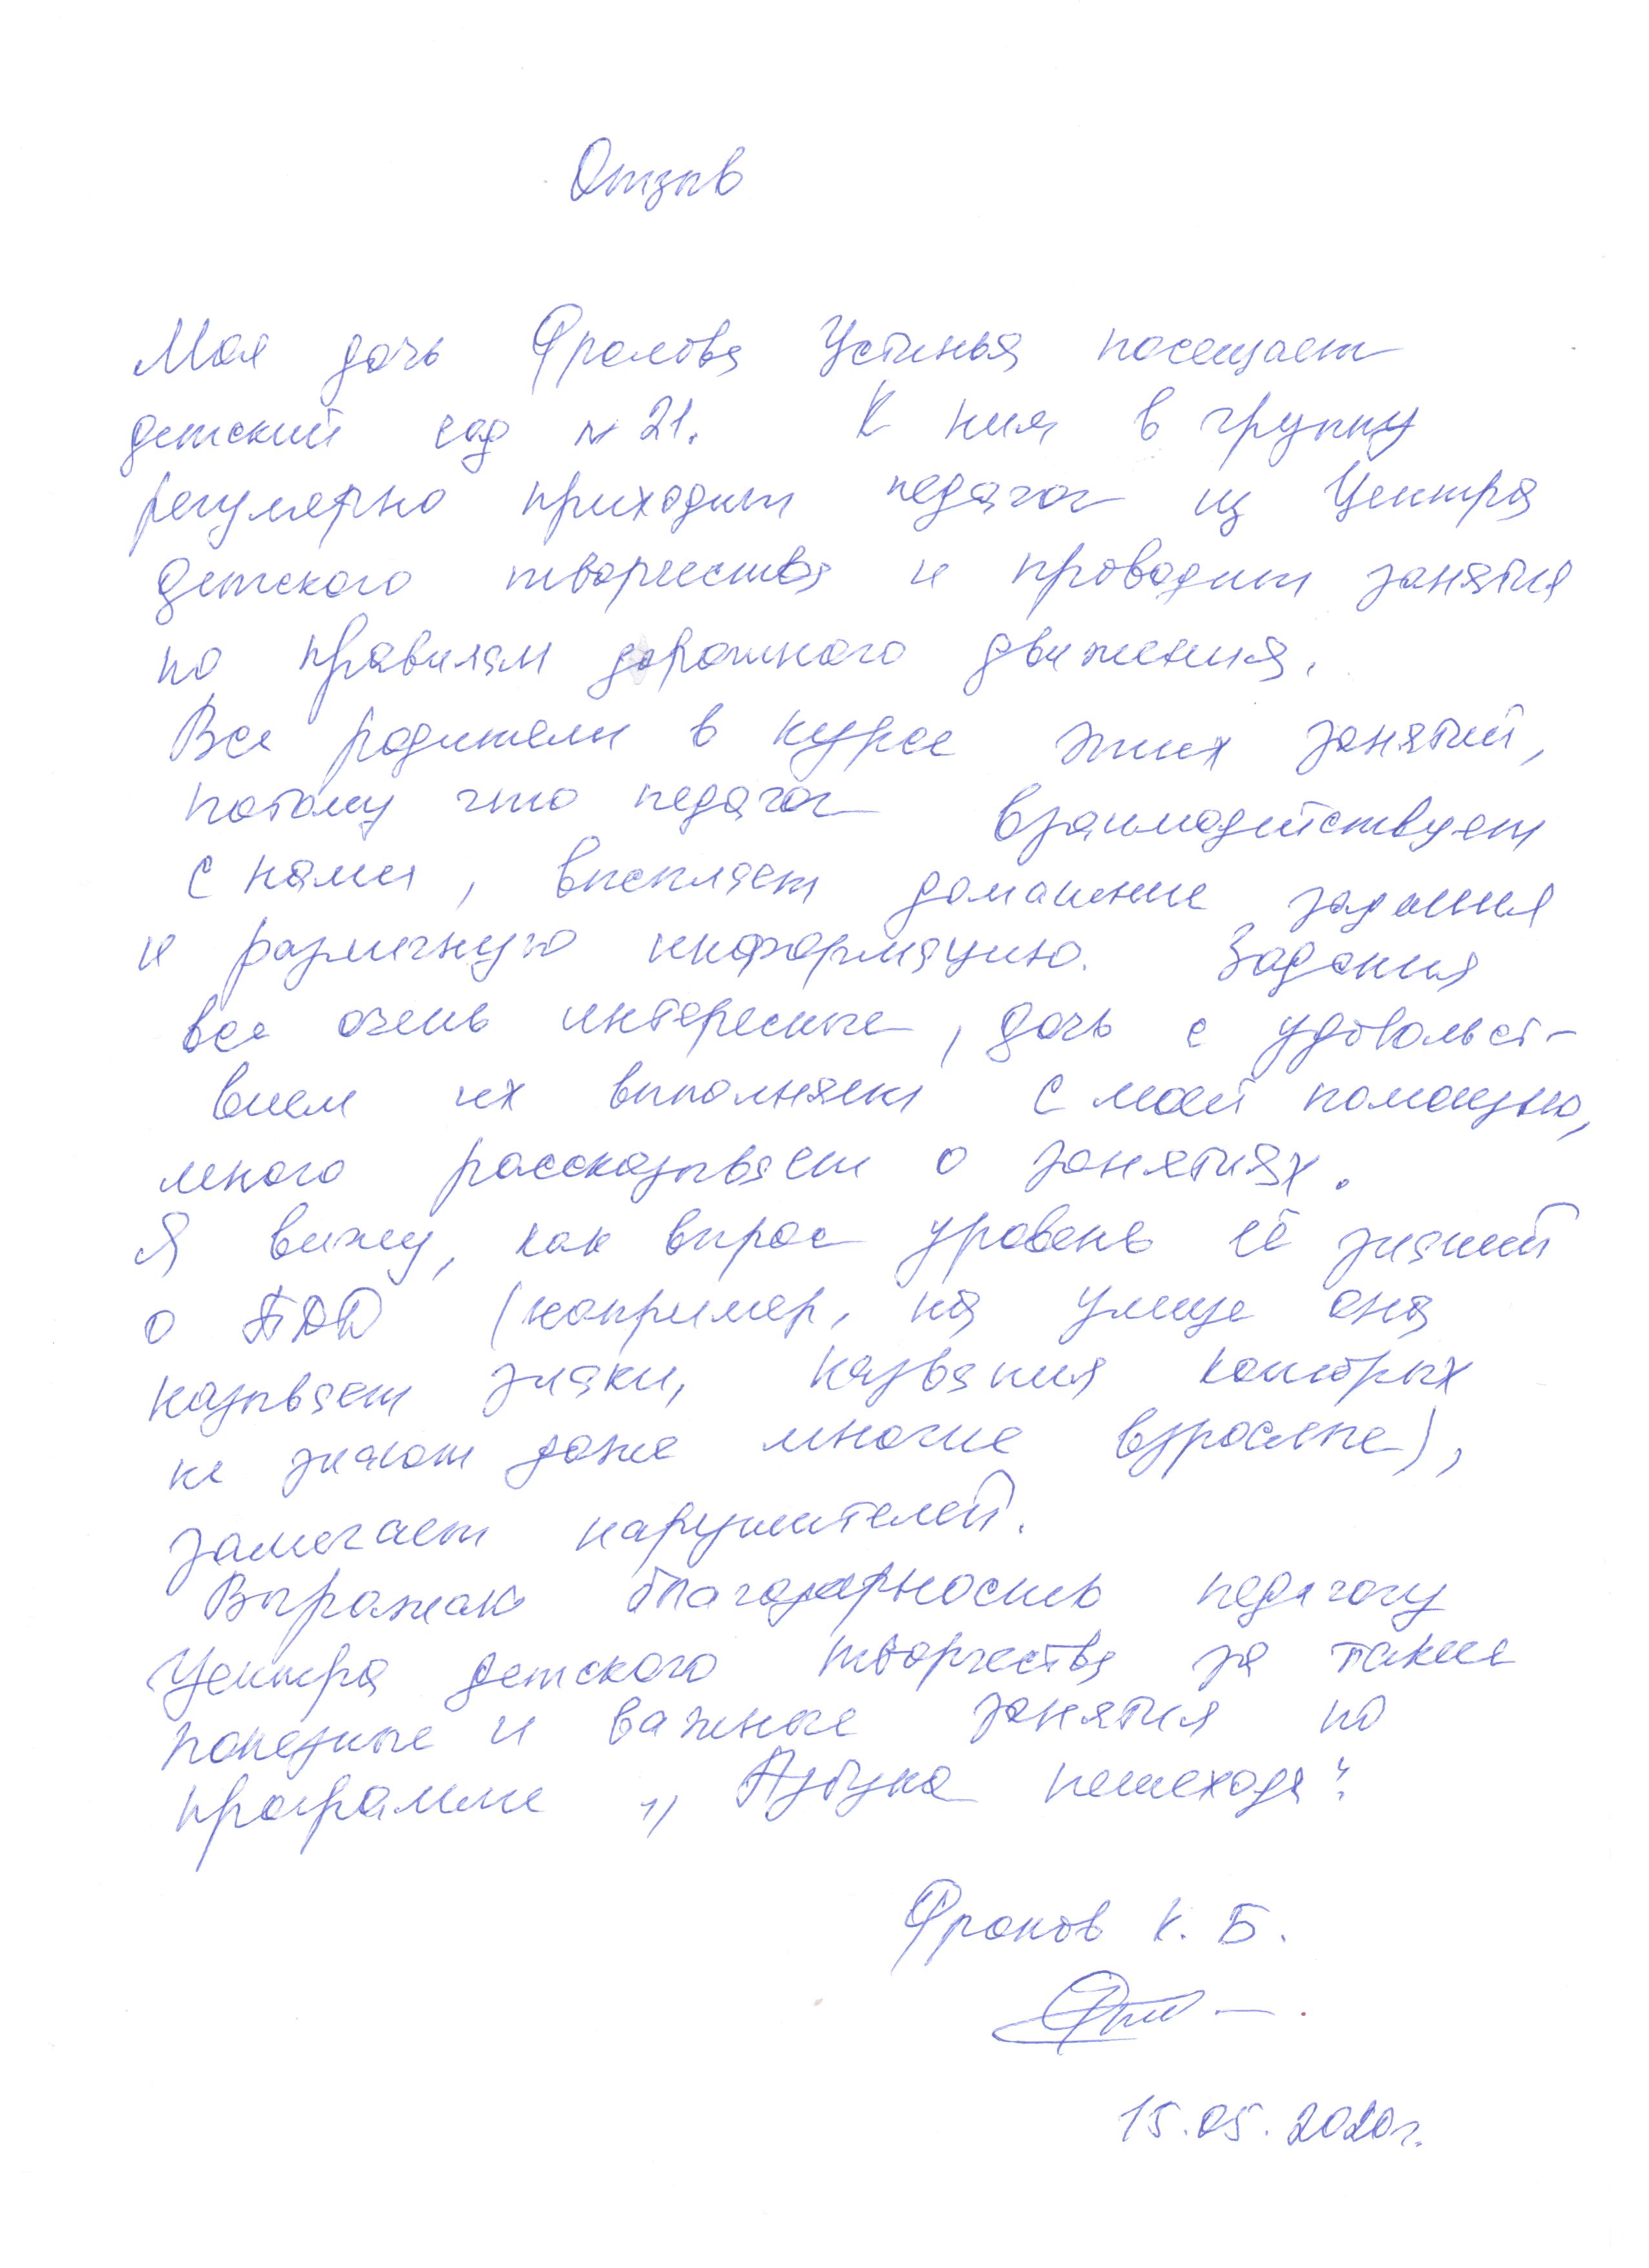 Отзыв
Моя дочь Фролова Устинья посещает
детский сад № 21. К ним в группу
регулярно приходит педагог из Центра
детского творчества и проводит занятия
по правилам дорожного движения.
Все родители в курсе этих занятий,
потому что педагог взаимодействует
с нами, высылает домашние задания
и различную информацию. Задания
все очень интересные, дочь с удовольст-
вием их выполняет с моей помощью,
много рассказывает о занятиях.
Я вижу, как вырос уровень её знаний
о ПДД (например, на улице она
называет знаки, названия которых
не знают даже многие взрослые),
замечает нарушителей.
Выражаю благодарность педагогу
Центра детского творчества за такие
полезные и важные занятия по
программе „Азбука пешехода".
Фролов К. Б.
15.05.2020г.